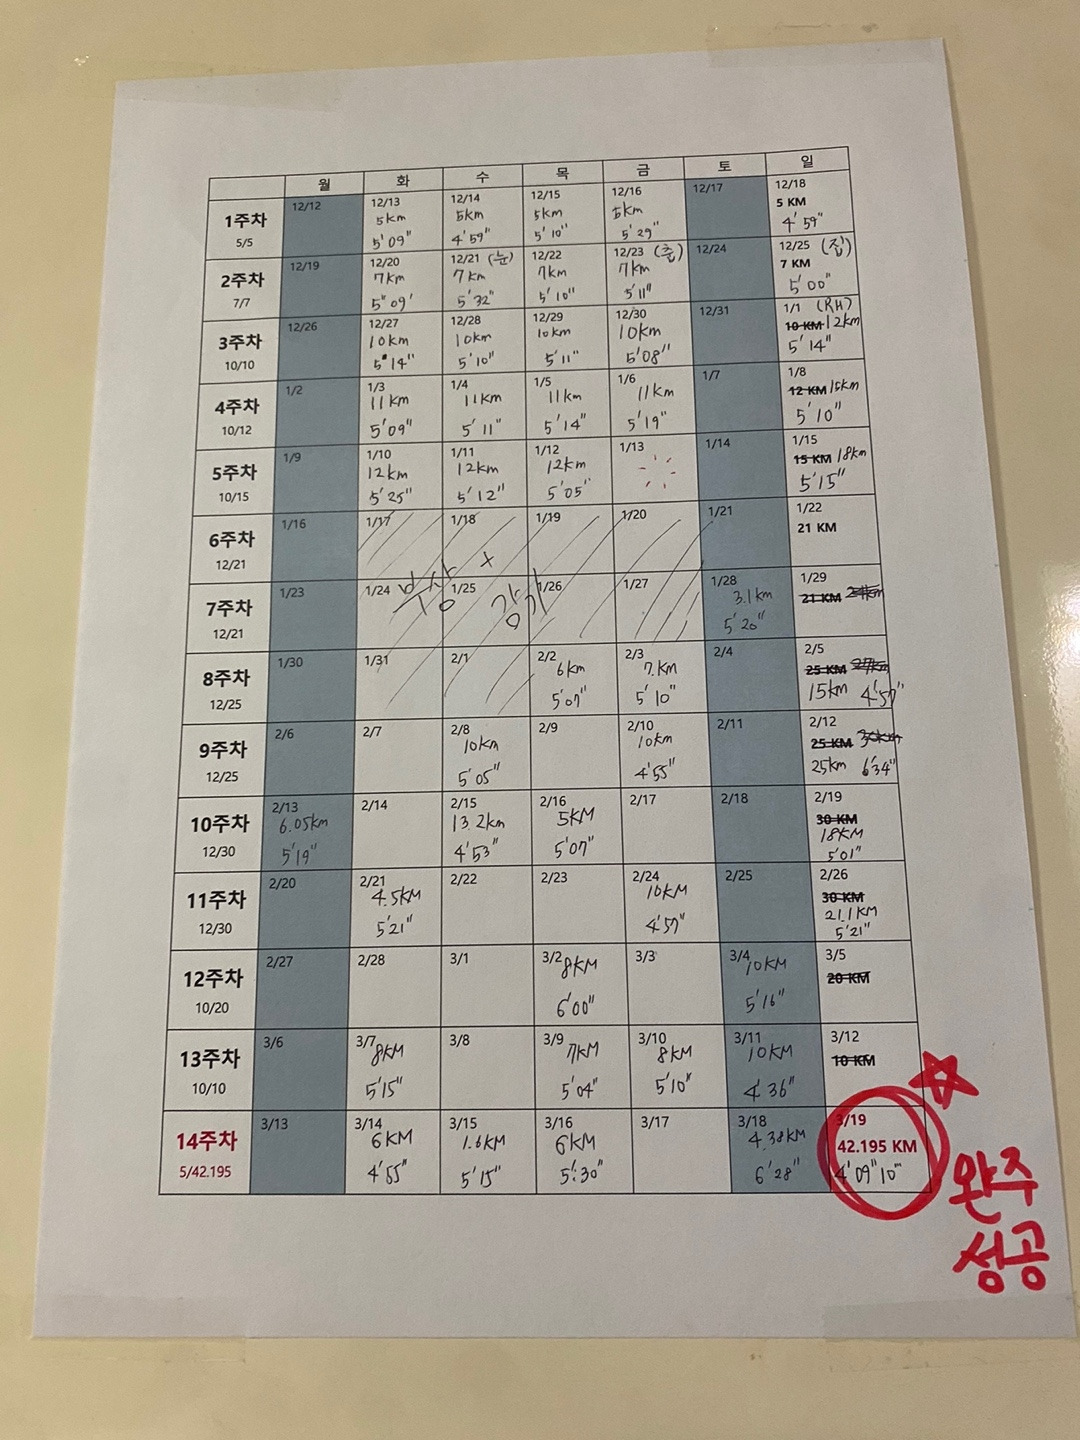 월 화 수 목 금 토 일
1주차
5/5
12/12
12/13
5km
5'09"
12/14
5km
4'59"
12/15
5km
5'10"
12/16
5km
5'29"
12/17
12/18
5 KM
4'59"
2주차
7/7
12/19
12/20
7km
5"09'
12/21 (눈)
7km
5'32"
12/22
7km
5'10"
12/23 (춥)
7km
5'11"
12/24
12/25 (집)
7 KM
5'00"
3주차
10/10
12/26
12/27
10km
5'14"
12/28
10km
5'10"
12/29
10km
5'11"
12/30
10km
5'08"
12/31
1/1 (RH)
10 KM 12km
5'14"
4주차
10/12
1/2
1/3
11km
5'09"
1/4
11km
5'11"
1/5
11km
5'14"
1/6
11km
5'19"
1/7
1/8
12 KM 15km
5'10"
5주차
10/15
1/9
1/10
12km
5'25"
1/11
12km
5'12"
1/12
12km
5'05"
1/13
1/14
1/15
15 KM 18km
5'15"
6주차
12/21
1/16
1/17
1/18
1/19
1/20
1/21
1/22
21 KM
부상 x
감기
7주차
12/21
1/23
1/24
1/25
1/26
1/27
1/28
3.1km
5'20"
1/29
21 KM
8주차
12/25
1/30
1/31
2/1
2/2
6km
5'07"
2/3
7km
5'10"
2/4
2/5
25 KM 27km
15km 4'57"
9주차
12/25
2/6
2/7
2/8
10km
5'05"
2/9
2/10
10km
4'55"
2/11
2/12
25 KM 30km
25km 6'34"
10주차
12/30
2/13
6.05km
5'19"
2/14
2/15
13.2km
4'53"
2/16
5KM
5'07"
2/17
2/18
2/19
30 KM
18KM
5'01"
11주차
12/30
2/20
2/21
4.5KM
5'21"
2/22
2/23
2/24
10KM
4'57"
2/25
2/26
30 KM
21.1KM
5'21"
12주차
10/20
2/27
2/28
3/1
3/2
8KM
6'00"
3/3
3/4
10KM
5'16"
3/5
20 KM
13주차
10/10
3/6
3/7
8KM
5'15"
3/8
3/9
7KM
5'04"
3/10
8KM
5'10"
3/11
10KM
4'36"
3/12
10 KM
14주차
5/42.195
3/13
3/14
6KM
4'55"
3/15
1.6KM
5'15"
3/16
6KM
5':30"
3/17
3/18
4.38KM
6'28"
3/19
42.195 KM
4'09"10'''
완주
성공